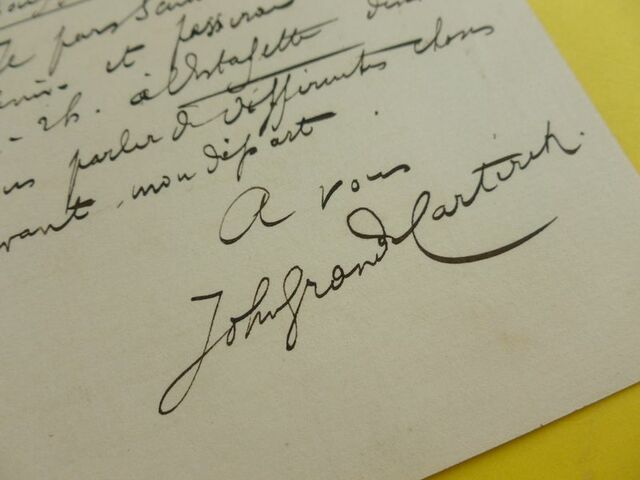 Je pars
et passerai
2h. à l'Estafette
parler de différentes choses
avant mon départ.
A vous
John Grand Carteret.